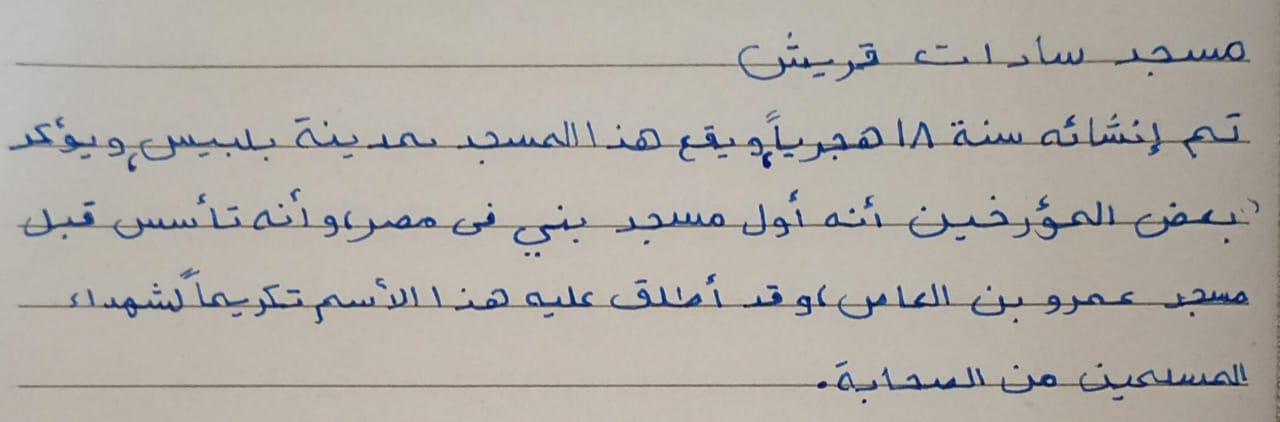 مسجد سادات قريش
تم إنشائه سنة ١٨ هجرياً، ويقع هذا المسجد بمدينة بلبيس، ويؤكد
بعض المؤرخين أنه أول مسجد بني فى مصر، وأنه تأسس قبل
مسجد عمرو بن العاص، وقد أطلق عليه هذا الأسم تكريماً لشهداء
المسلمين من الصحابة.